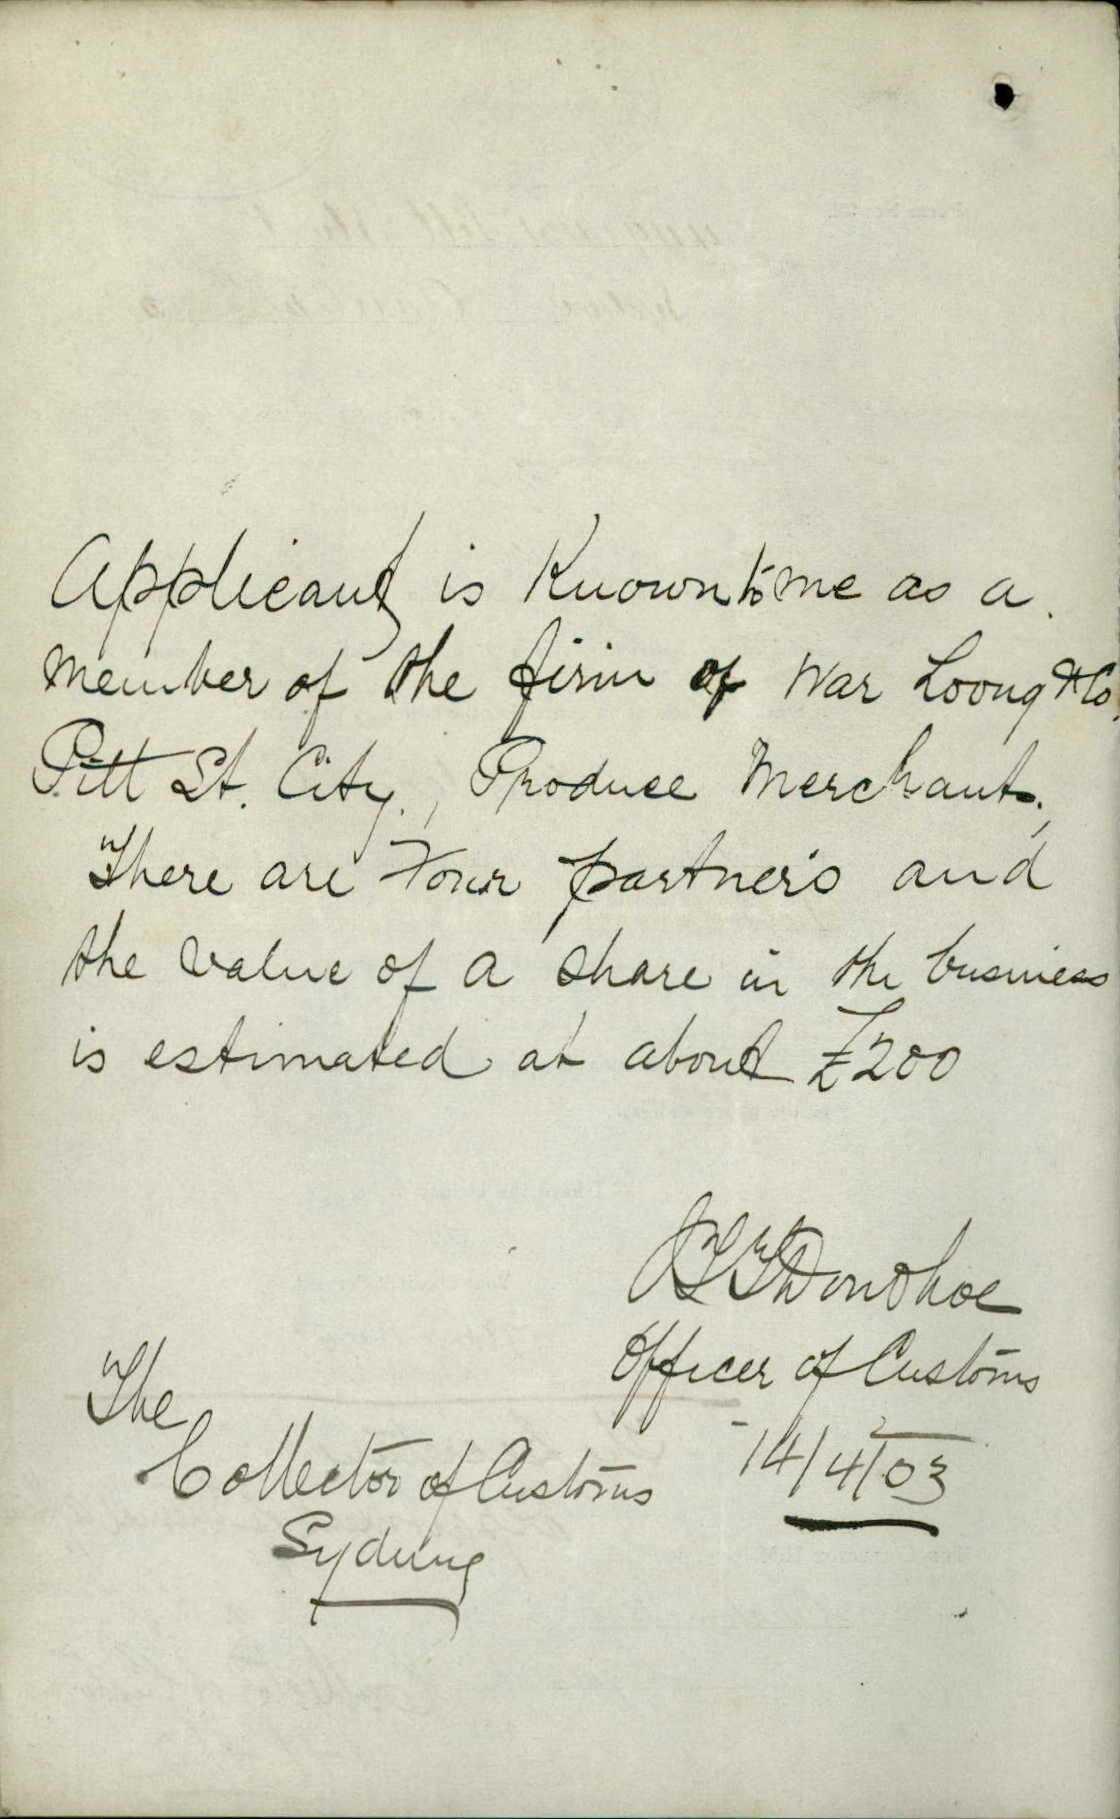 Applicant is Known to me as a
member of the firm of War Loong & Co.
Pitt St. City, Produce Merchants.
There are Four partners and
the value of a share in the business
is estimated at about £200
JTT Donohoe
Officer of Customs
14/4/03
The
Collector of Customs
Sydney